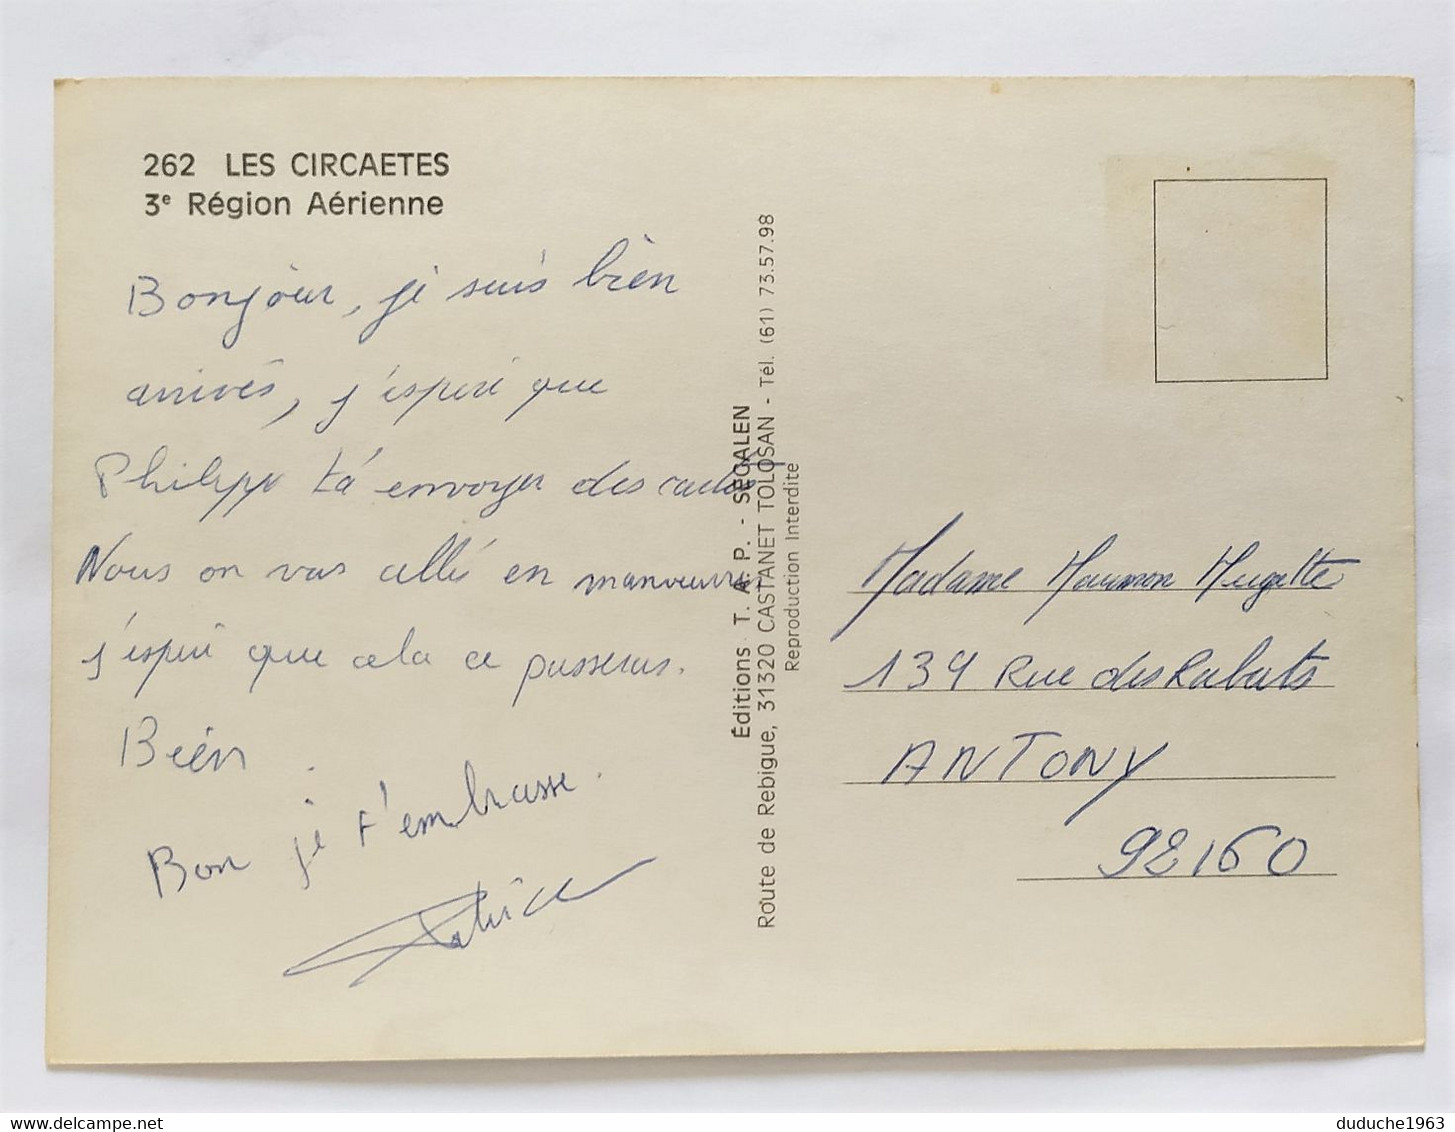 262 LES CIRCAETES
3e Région Aérienne
Bonjour, je suis bien
arrivés, j'esperé que
Philippe t'a envoyer des cartes
Nous on vas allés en manoeuvres
j'esperé que cela ce passeras.
Bién.
Bon je t'embrasse.
Patrice
Éditions T. A. P. - SEGALEN
Route de Rebigue, 31320 CASTANET TOLOSAN - Tél. (61) 73.57.98
Reproduction Interdite
Madame Hugette
139 Rue des Rabats
ANTONY
92160
delcampe.net
duduche1963